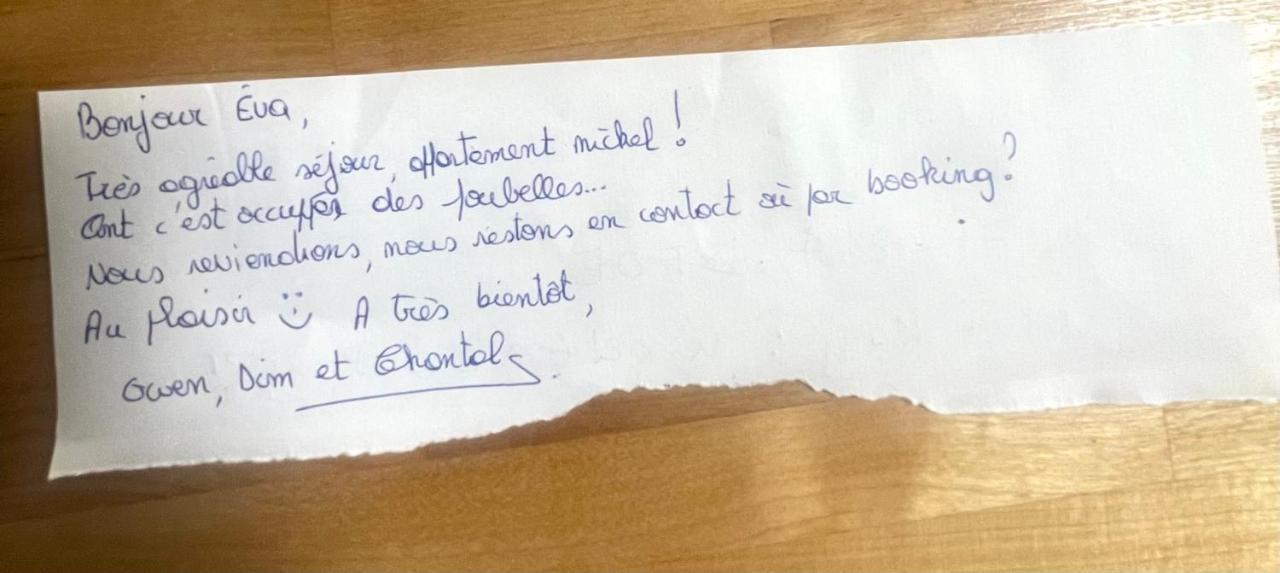 Bonjour Éva,
Très agréable séjour, appartement nickel !
Ont c'est occupper des poubelles...
Nous reviendrons, nous restons en contact où par booking ?
Au plaisir :) A très bientôt,
Gwen, Dim et Chantal.